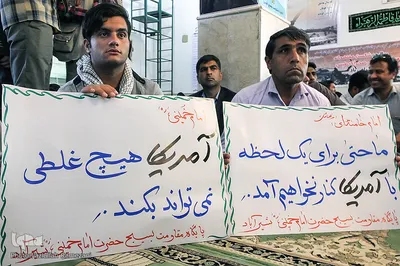 امام خامنه ای
ما حتی برای یک لحظه
با آمریکا کنار نخواهیم آمد..
پایگاه مقاومت بسیج حضرت امام خمینی
امام خمینی
آمریکا هیچ غلطی
نمی تواند بکند..
پایگاه مقاومت بسیج حضرت امام خمینی